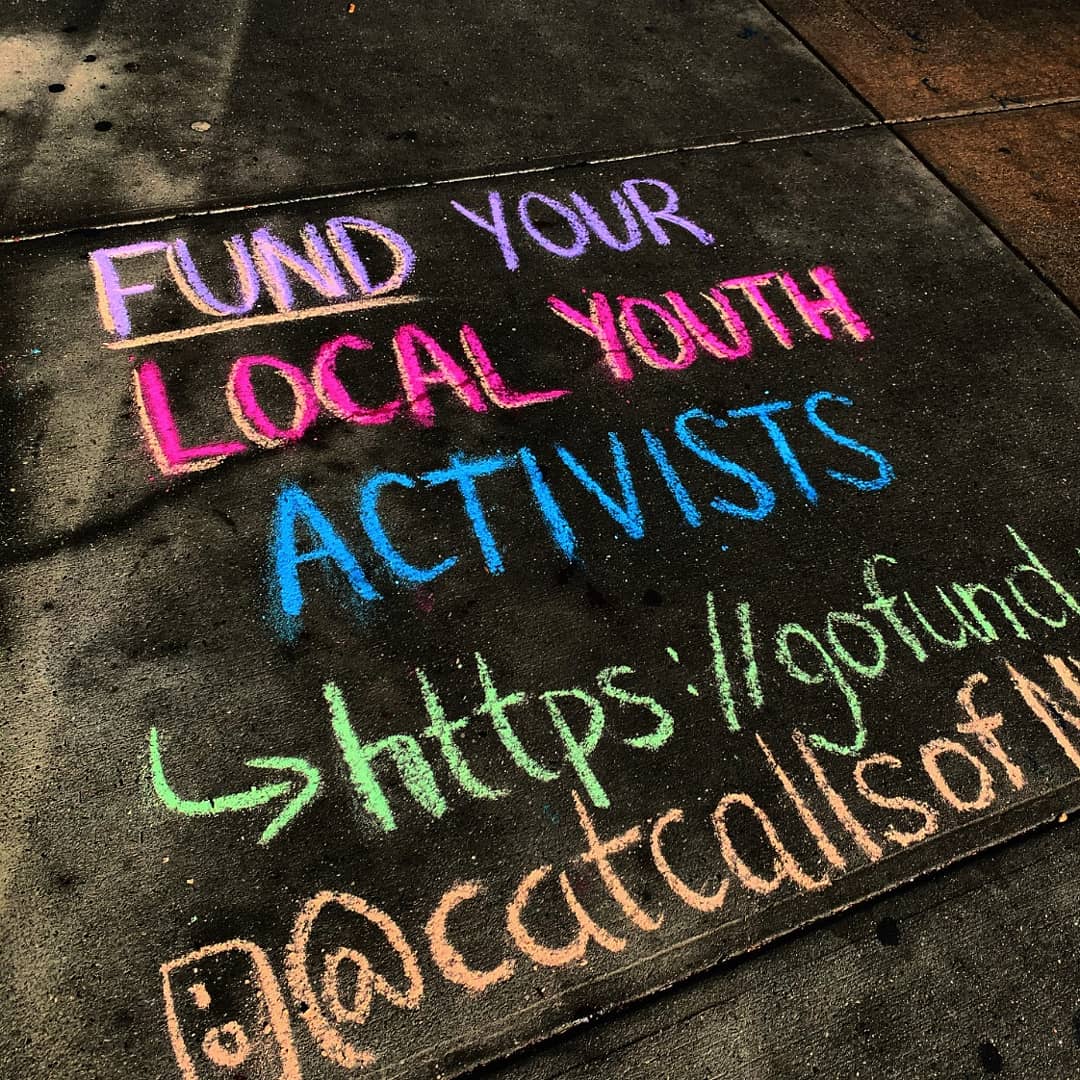 FUND YOUR
LOCAL YOUTH
ACTIVISTS
↳https://gofund
@catcallsofN